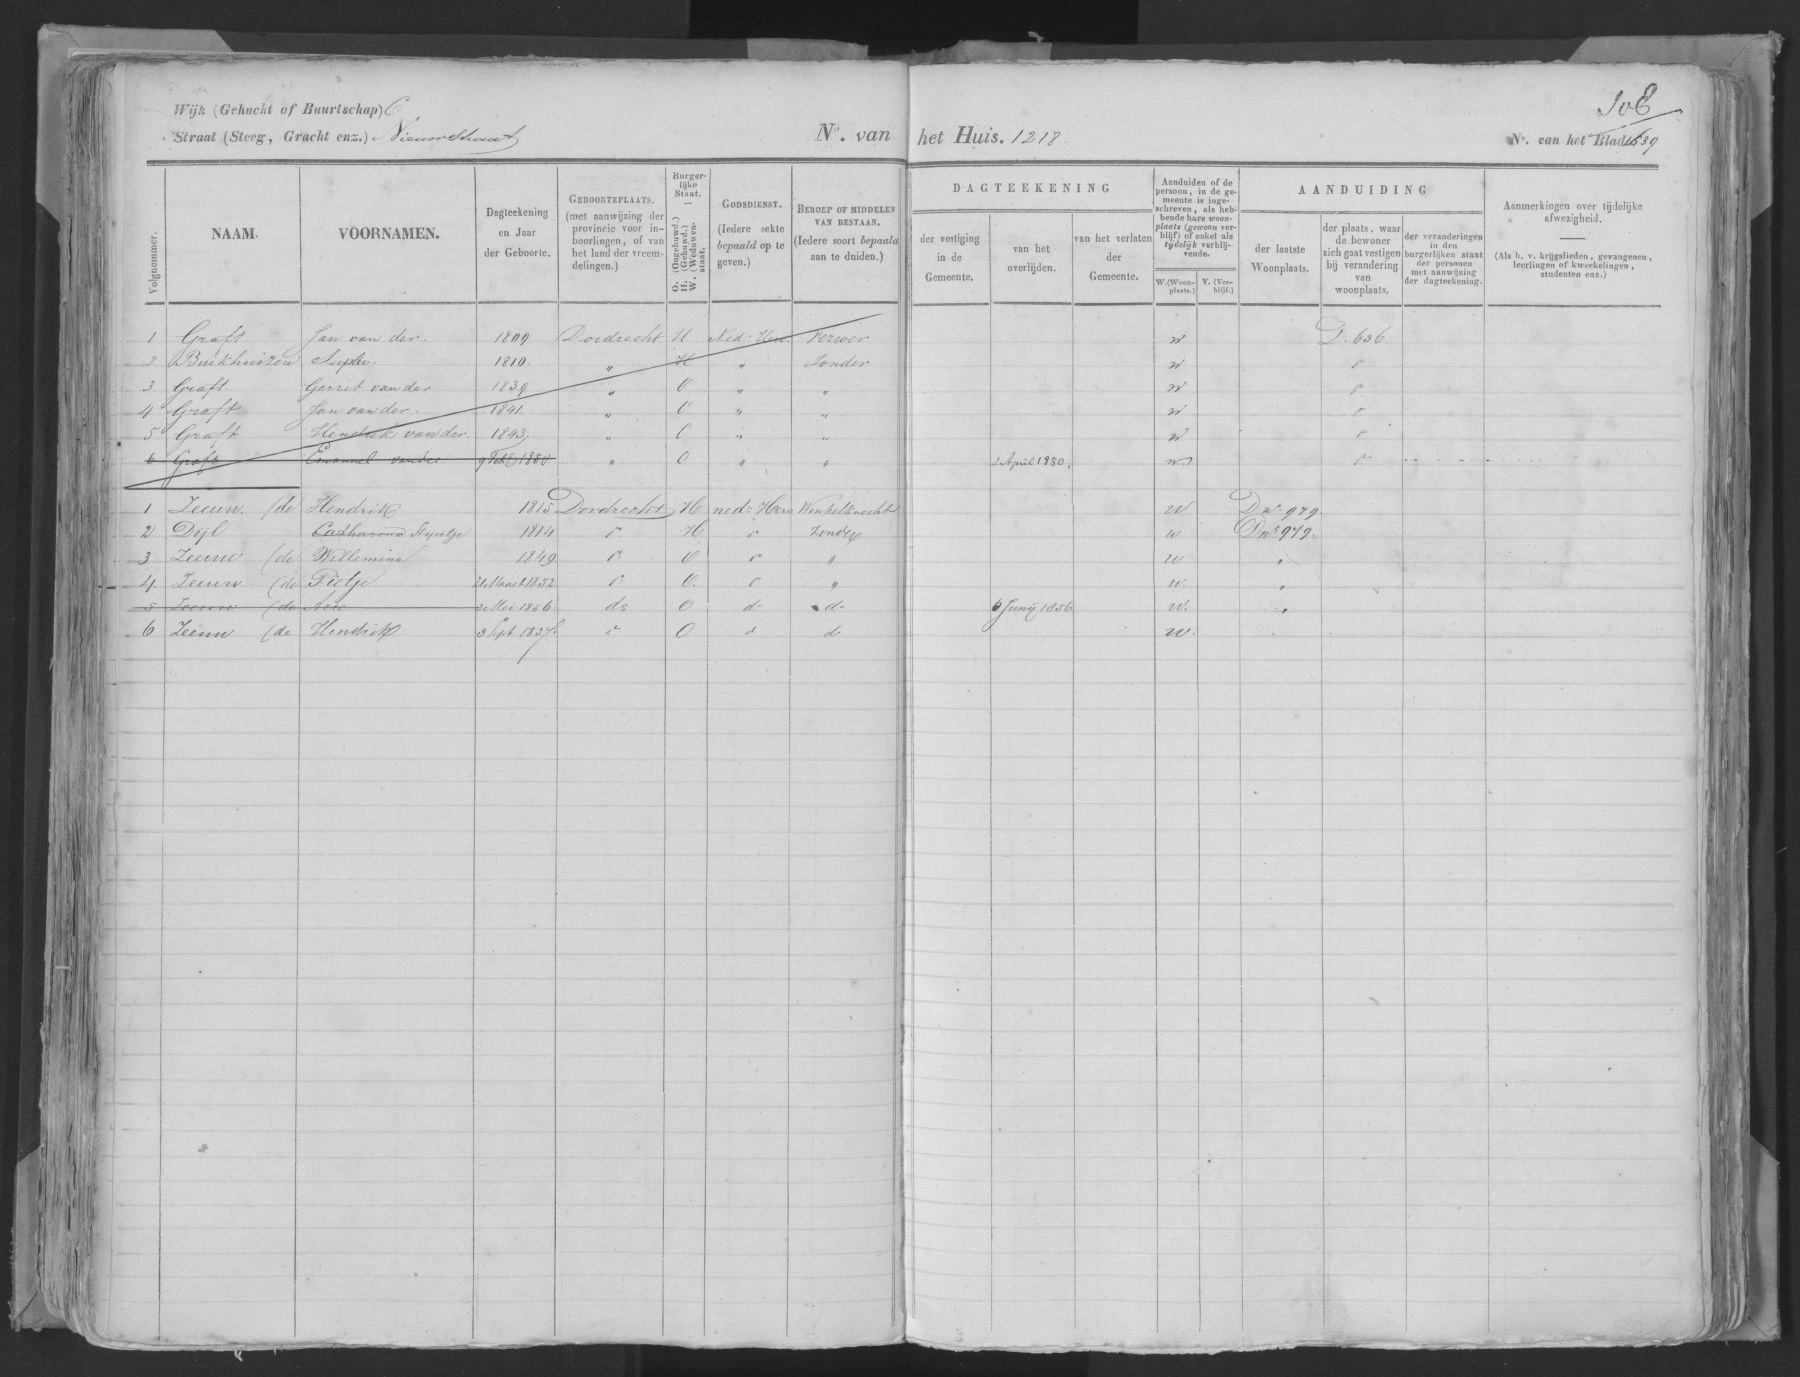 Wijk (Gehucht of Buurtschap) C
Straat (Steeg, Gracht enz.) Nieuwstraat
No. van het Huis. 1218.
No. van het Blad 1639
Volgnommer.
NAAM.
VOORNAMEN.
Dagteekening
en Jaar
der Geboorte.
GEBOORTEPLAATS.
(met aanwijzing der
provincie voor in-
boorlingen, of van
het land der vreem-
delingen.)
Burger-
lijke
Staat.
O. (Ongehuwd.)
H. (Gehuwd.)
W. (Weduwen-
staat.
GODSDIENST.
(Iedere sekte
bepaald op te
geven.)
BEROEP OF MIDDELEN
VAN BESTAAN.
(Iedere soort bepaald
aan te duiden.)
DAGTEEKENING
der vestiging
in de
Gemeente.
van het
overlijden.
van het verlaten
der
Gemeente.
Aanduiden of de
persoon, in de ge-
meente is inge-
schreven, als heb-
bende hare woon-
plaats (gewoon ver-
blijf) of enkel als
tijdelijk verblij-
vende.
W. (Woon-
plaats.)
V. (Ver-
blijf.)
AANDUIDING
der laatste
Woonplaats.
der plaats, waar
de bewoner
zich gaat vestigen
bij verandering
van
woonplaats.
der veranderingen
in den
burgerlijken staat
der personen
met aanwijzing
der dagteekening.
Aanmerkingen over tijdelijke
afwezigheid.
(Als b. v. krijgslieden, gevangenen,
leerlingen of kweekelingen,
studenten enz.)
1 Graft Jan van der. 1809 Dordrecht H Ned: Herv. Verwer w D. 636
2 1810. " H " Zonder w
3 Graft Gerrit van der 1839 " O " " w
4 Graft Jan van der. 1841 " O " " w
5 Graft Hendrik van der. 1843 " O " " w
6 Graft Emanuel van der 9 Feb 1850 " O " " 2 April 1850. w
1 Zeeuw. (de Hendrik 1815 Dordrecht H ned: Herv Winkelknecht w D no 979.
2 Dijl Catharina Stijntje 1814 do H do Zonder w D no 979.
3 Zeeuw (de Willemina 1849 do O do " w "
4. Zeeuw (de Pietje 21 Maart 1852 do O. do " w. "
5 Zeeuw (de Arie 3 Mei 1856 do O do do 6 Junij 1856 w. "
6 Zeeuw (de Hendrik 3 Sept 1857. do O do do w.